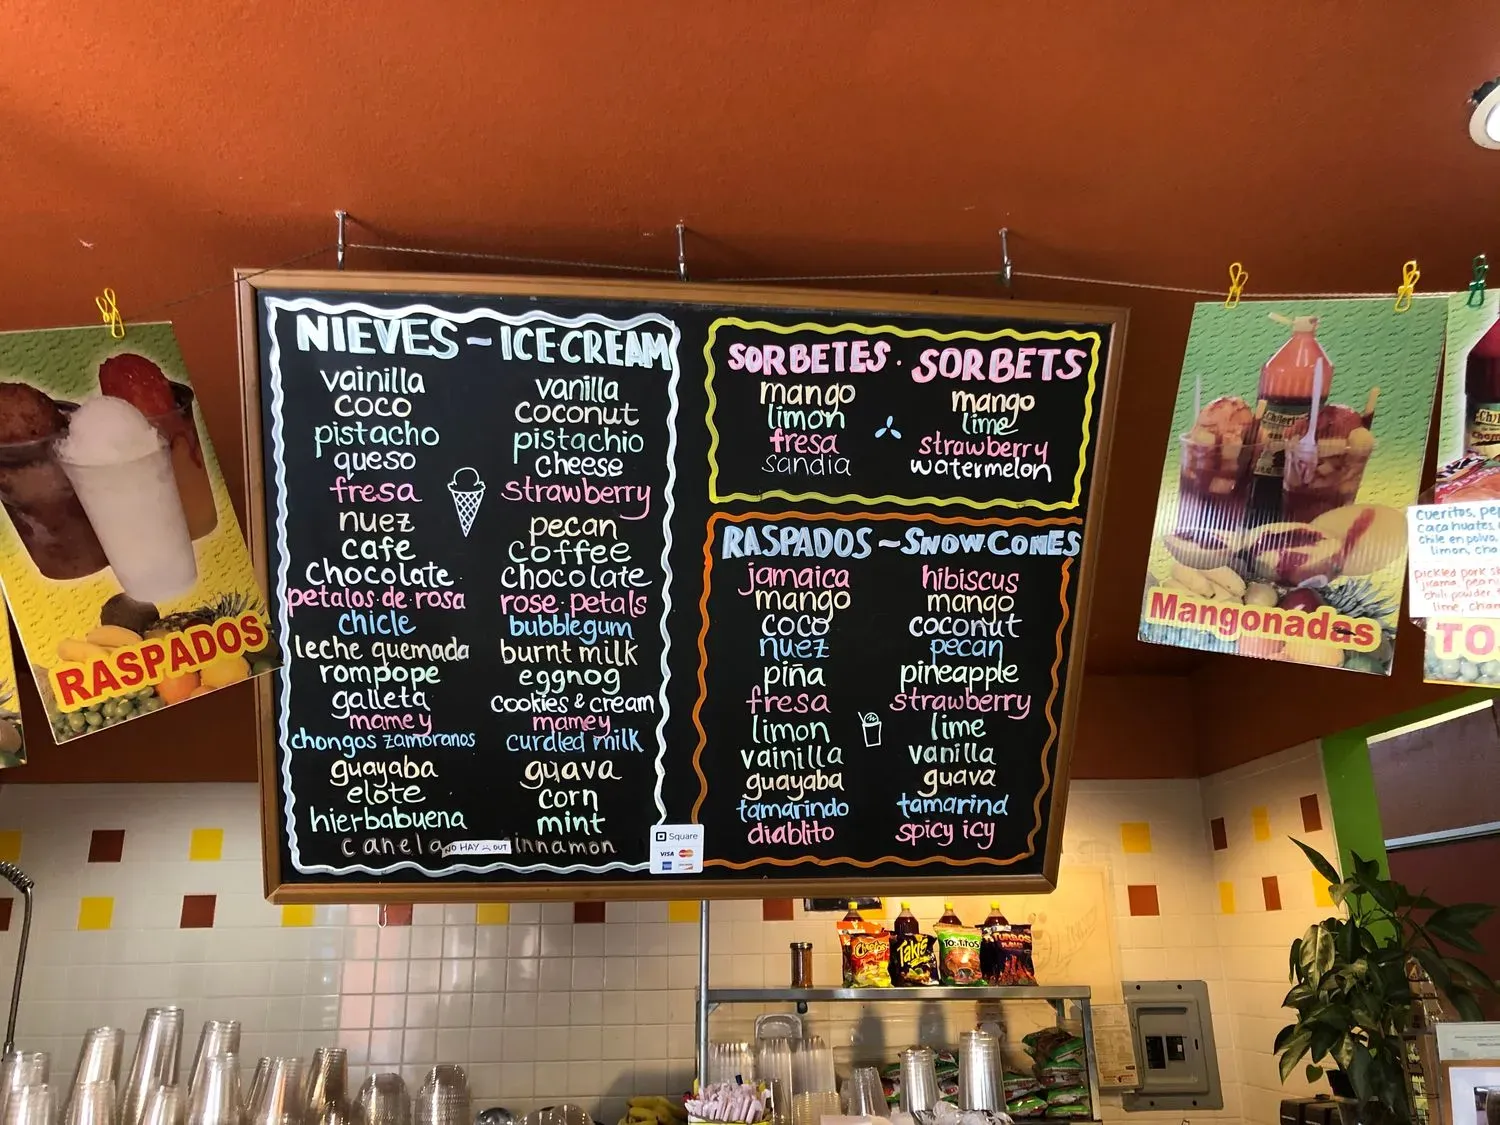 NIEVES - ICE CREAM
vainilla vanilla
coco coconut
pistacho pistachio
queso cheese
fresa strawberry
nuez pecan
cafe coffee
chocolate chocolate
petalos de rosa rose petals
chicle bubblegum
leche quemada burnt milk
rompope eggnog
galleta cookies & cream
mamey mamey
chongos zamoranos curdled milk
guayaba guava
elote corn
hierbabuena mint
canela NO HAY OUT innamon
Square
VISA
SORBETES · SORBETS
mango mango
limon lime
fresa strawberry
sandia watermelon
RASPADOS ~ SNOW CONES
jamaica hibiscus
mango mango
coco coconut
nuez pecan
piña pineapple
fresa strawberry
limon lime
vainilla vanilla
guayaba guava
tamarindo tamarind
diablito spicy icy
RASPADOS
Mangonadas
cueritos, pe
cacahuates
chile en polvo,
limon, cha
pickled pork s
jicama, pean
chili powder,
lime, cham
TO
Cheetos
Takis
TOSTITOS